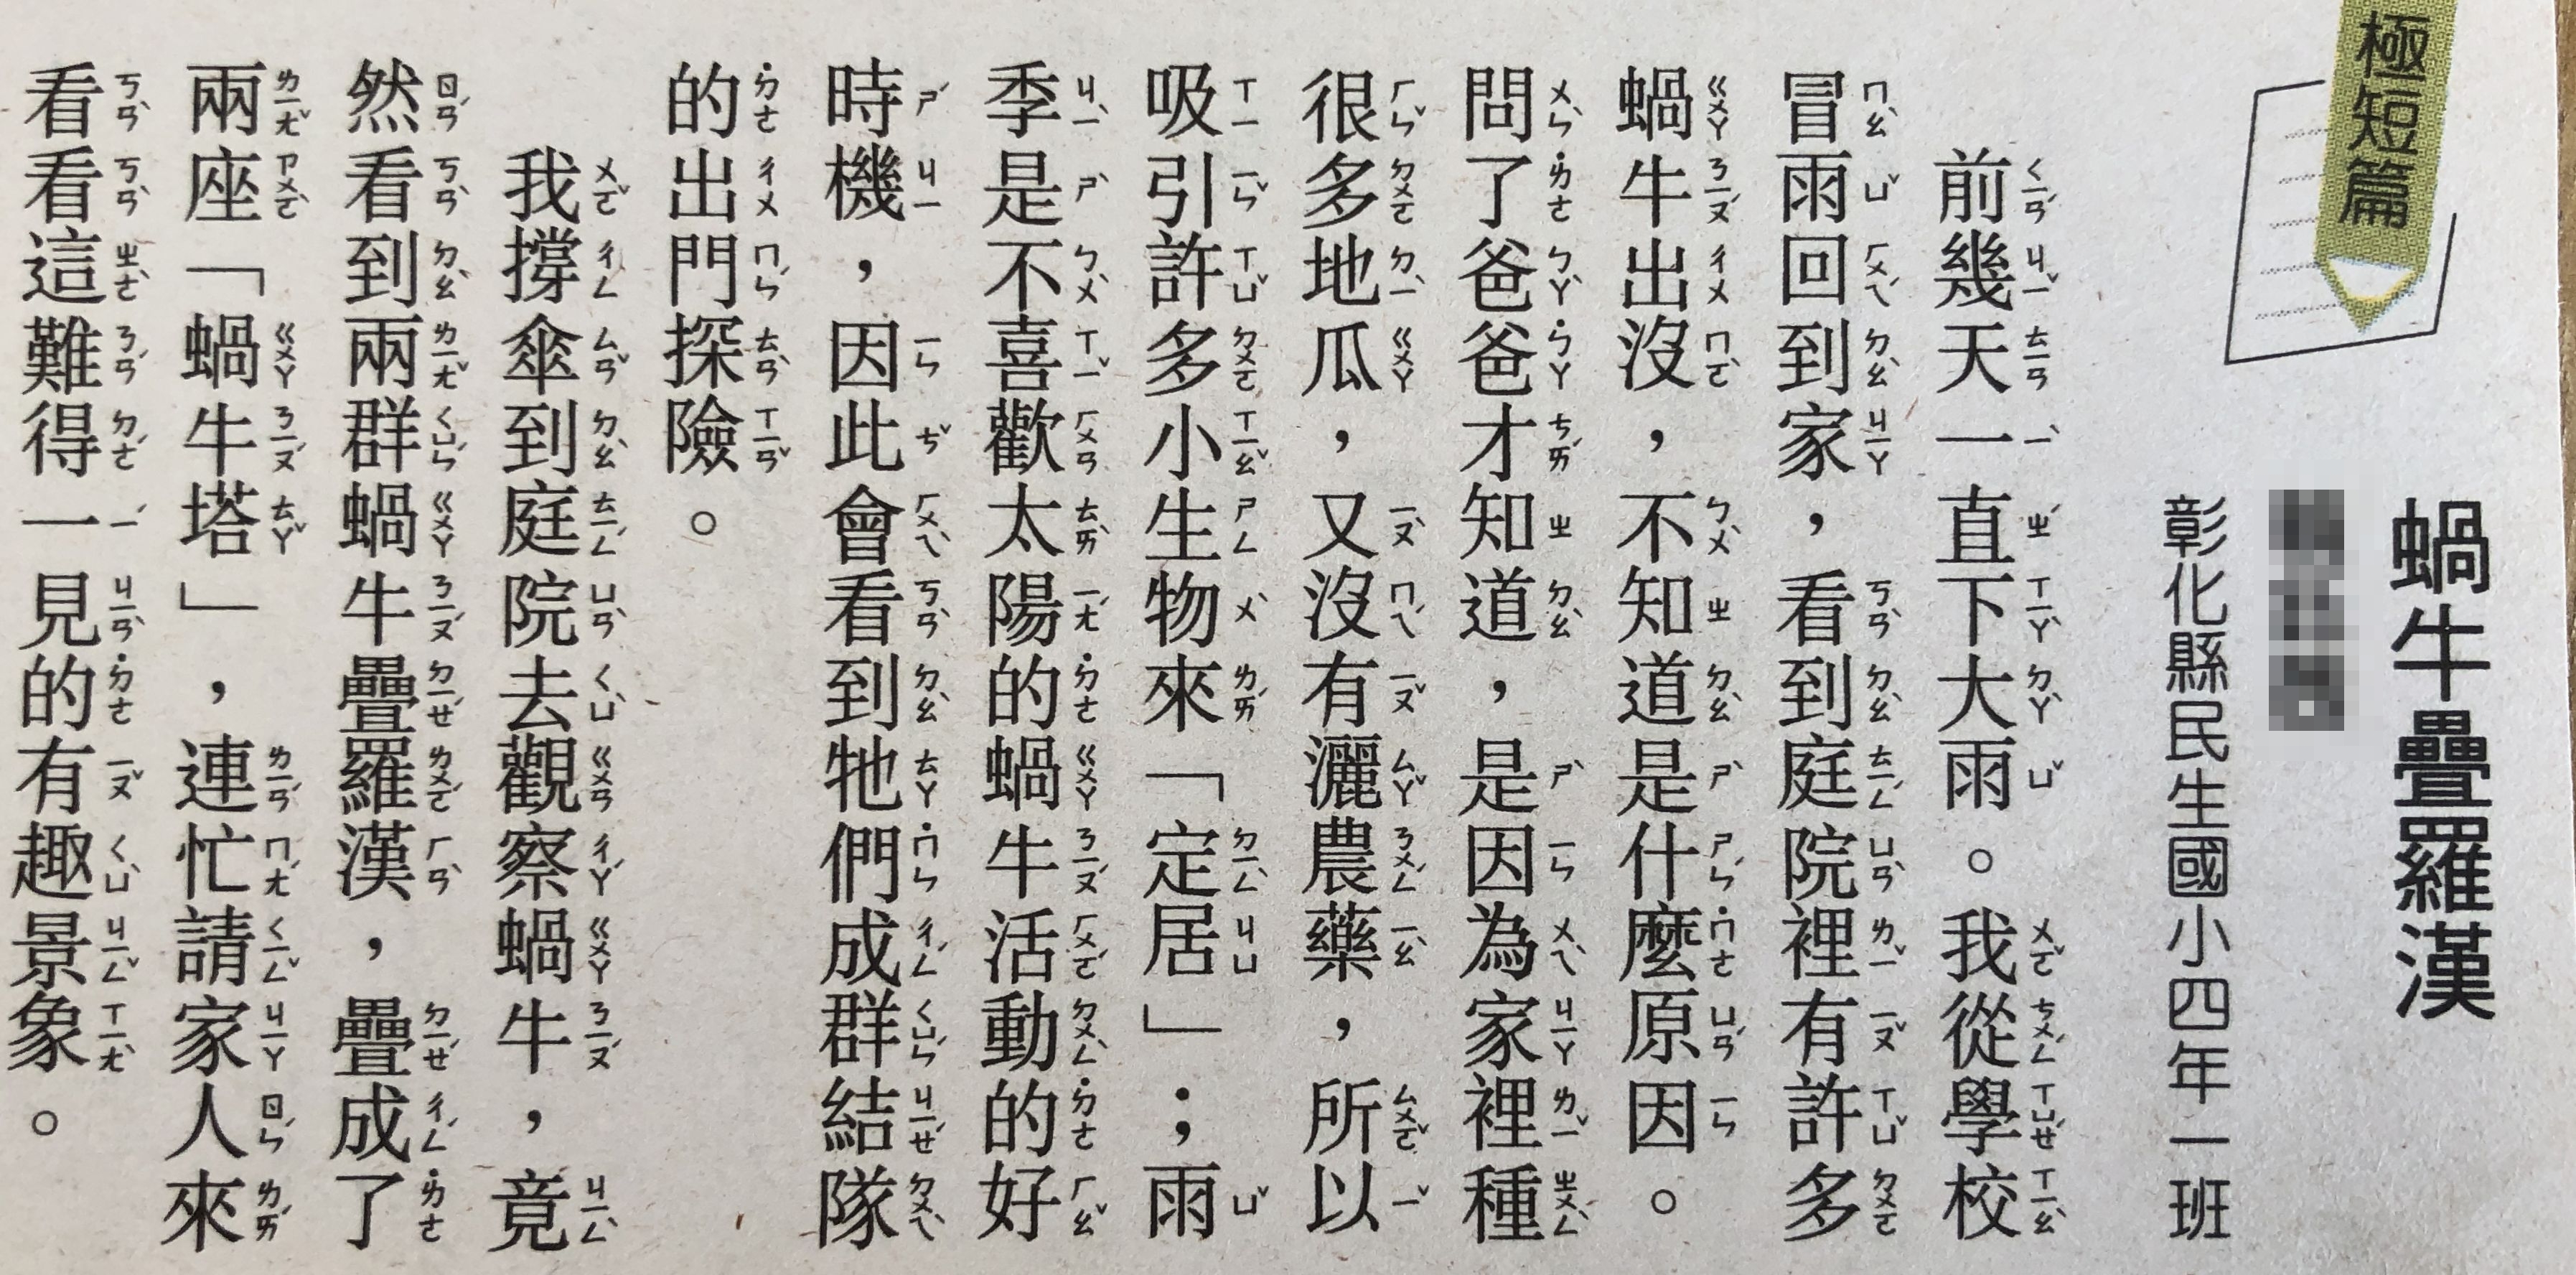 極短篇
蝸牛疊羅漢
彰化縣民生國小四年一班
前幾天一直下大雨。我從學校
冒雨回到家，看到庭院裡有許多
蝸牛出沒，不知道是什麼原因。
問了爸爸才知道，是因為家裡種
很多地瓜，又沒有灑農藥，所以
吸引許多小生物來「定居」；雨
季是不喜歡太陽的蝸牛活動的好
時機，因此會看到牠們成群結隊
的出門探險。
我撐傘到庭院去觀察蝸牛，竟
然看到兩群蝸牛疊羅漢，疊成了
兩座「蝸牛塔」，連忙請家人來
看看這難得一見的有趣景象。